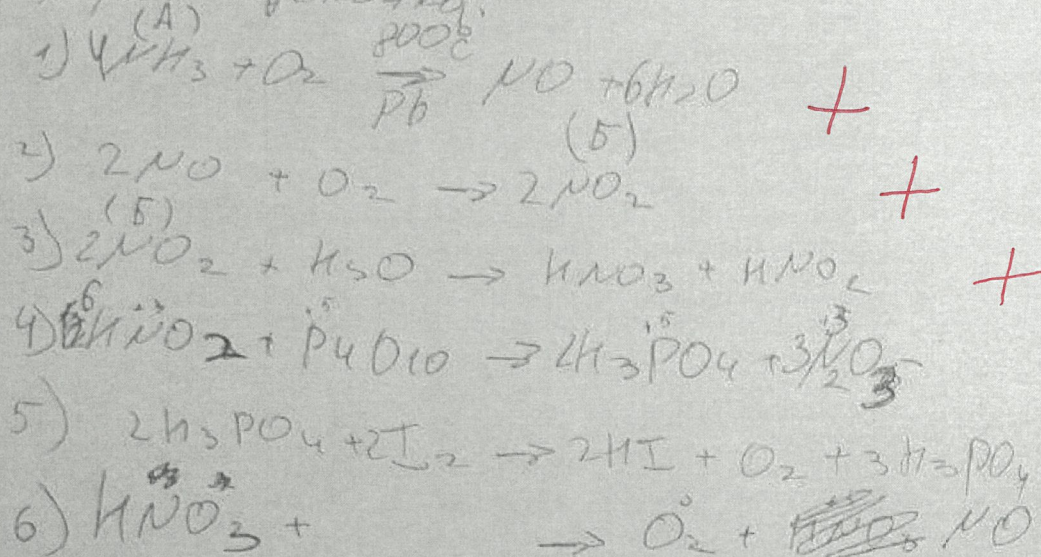 (A)
1) 4NH3 + O2 800°C ⇉ Pb NO + 6H2O
(Б)
2) 2NO + O2 → 2NO2
(Б)
3) 2NO2 + H2O → HNO3 + HNO2
4) 6HNO2 + P4O10 → 2H3PO4 + 3N2O3
5) 2H3PO4 + 2I2 → 2HI + O2 + 3H3PO4
6) HNO3 + → O2 + NO